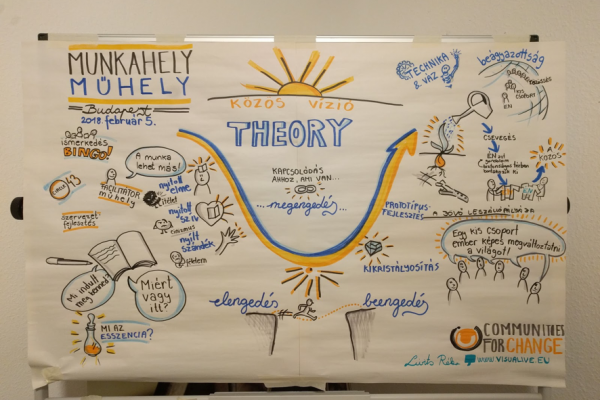 MUNKAHELY
MŰHELY
Budapest
2018. február 5.
ismerkedés
BINGO!
43
A munka
lehet más!
FACILITÁTOR
műhely
szervezet-
fejlesztés
Mi indult
meg benned?
Miért
vagy
itt?
MI AZ
ESSZENCIA?
KÖZÖS VÍZIÓ
THEORY
ítélet
nyitott
elme
nyitott
szív
cinizmus
nyílt
szándék
félelem
KAPCSOLÓDÁS
AHHOZ, AMI VAN...
...megengedés...
PROTOTÍPUS-
FEJLESZTÉS
KIKRISTÁLYOSÍTÁS
elengedés
beengedés
TECHNIKA
& VÁZ
beágyazottság
ÉN
CSEVEGÉS
KÖZÖS
Egy kis csoport
ember képes megváltoztatni
a világot!
COMMUNITIES
FOR CHANGE
www.VISUALIVE.EU